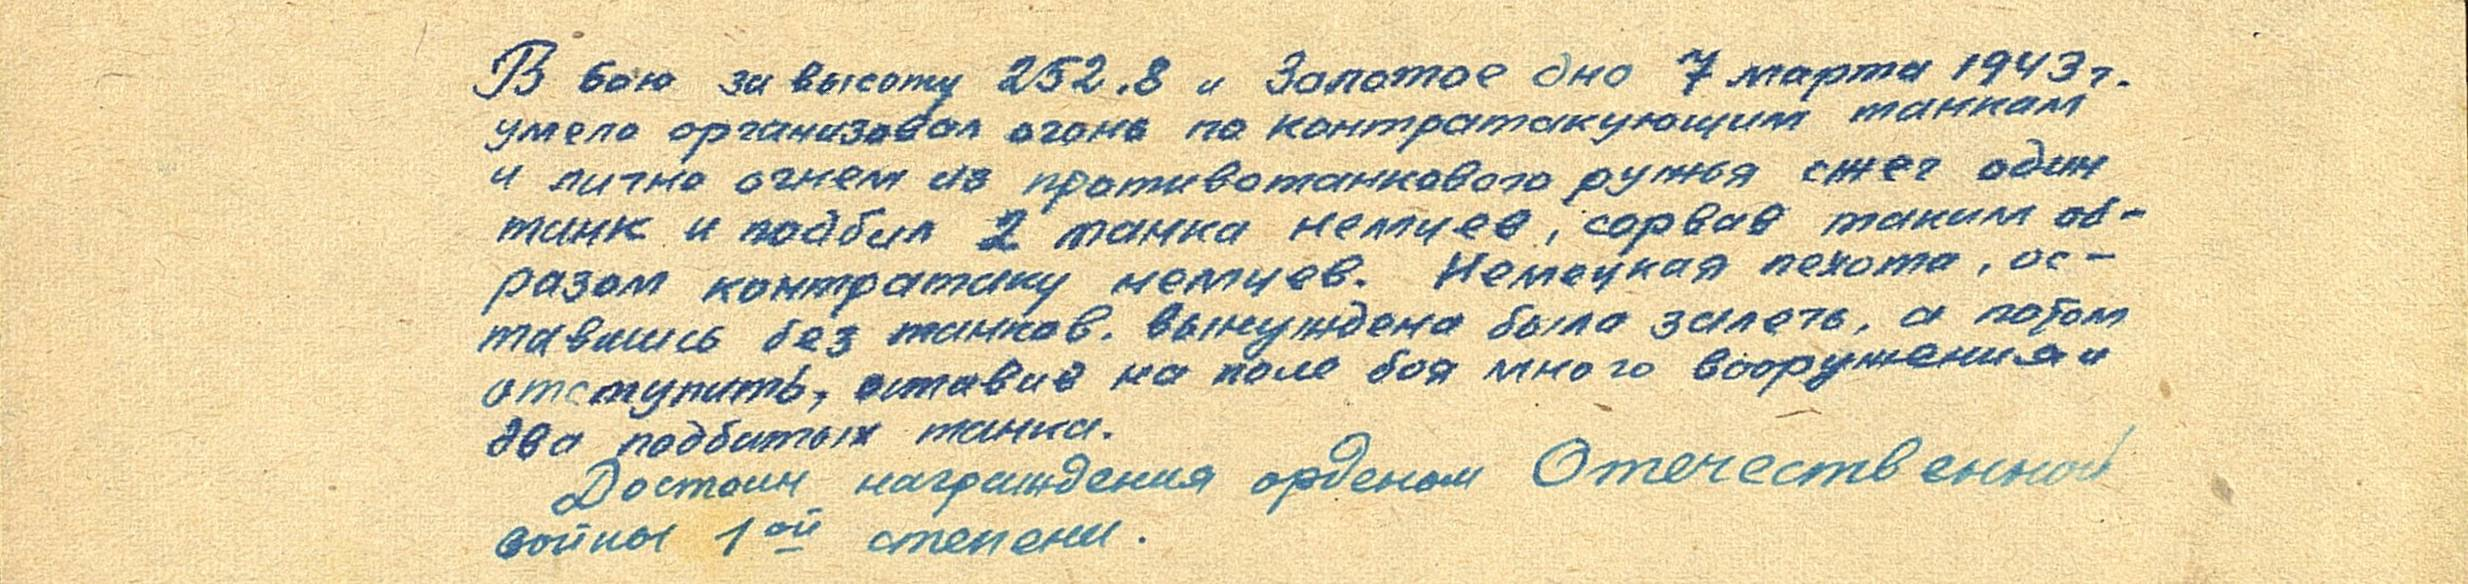 В бою за высоту 252.8 и Золотое дно 7 марта 1943 г.
умело организовал огонь по контратакующим танкам
и лично огнем из противотанкового ружья сжег один
танк и подбил 2 танка немцев, сорвав таким об-
разом контратаку немцев. Немецкая пехота, ос-
тавшись без танков. вынуждена была залечь, а потом
отступить, оставив на поле боя много вооружения и
два подбитых танка.
Достоин награждения орденом Отечественной
войны 1ой степени.